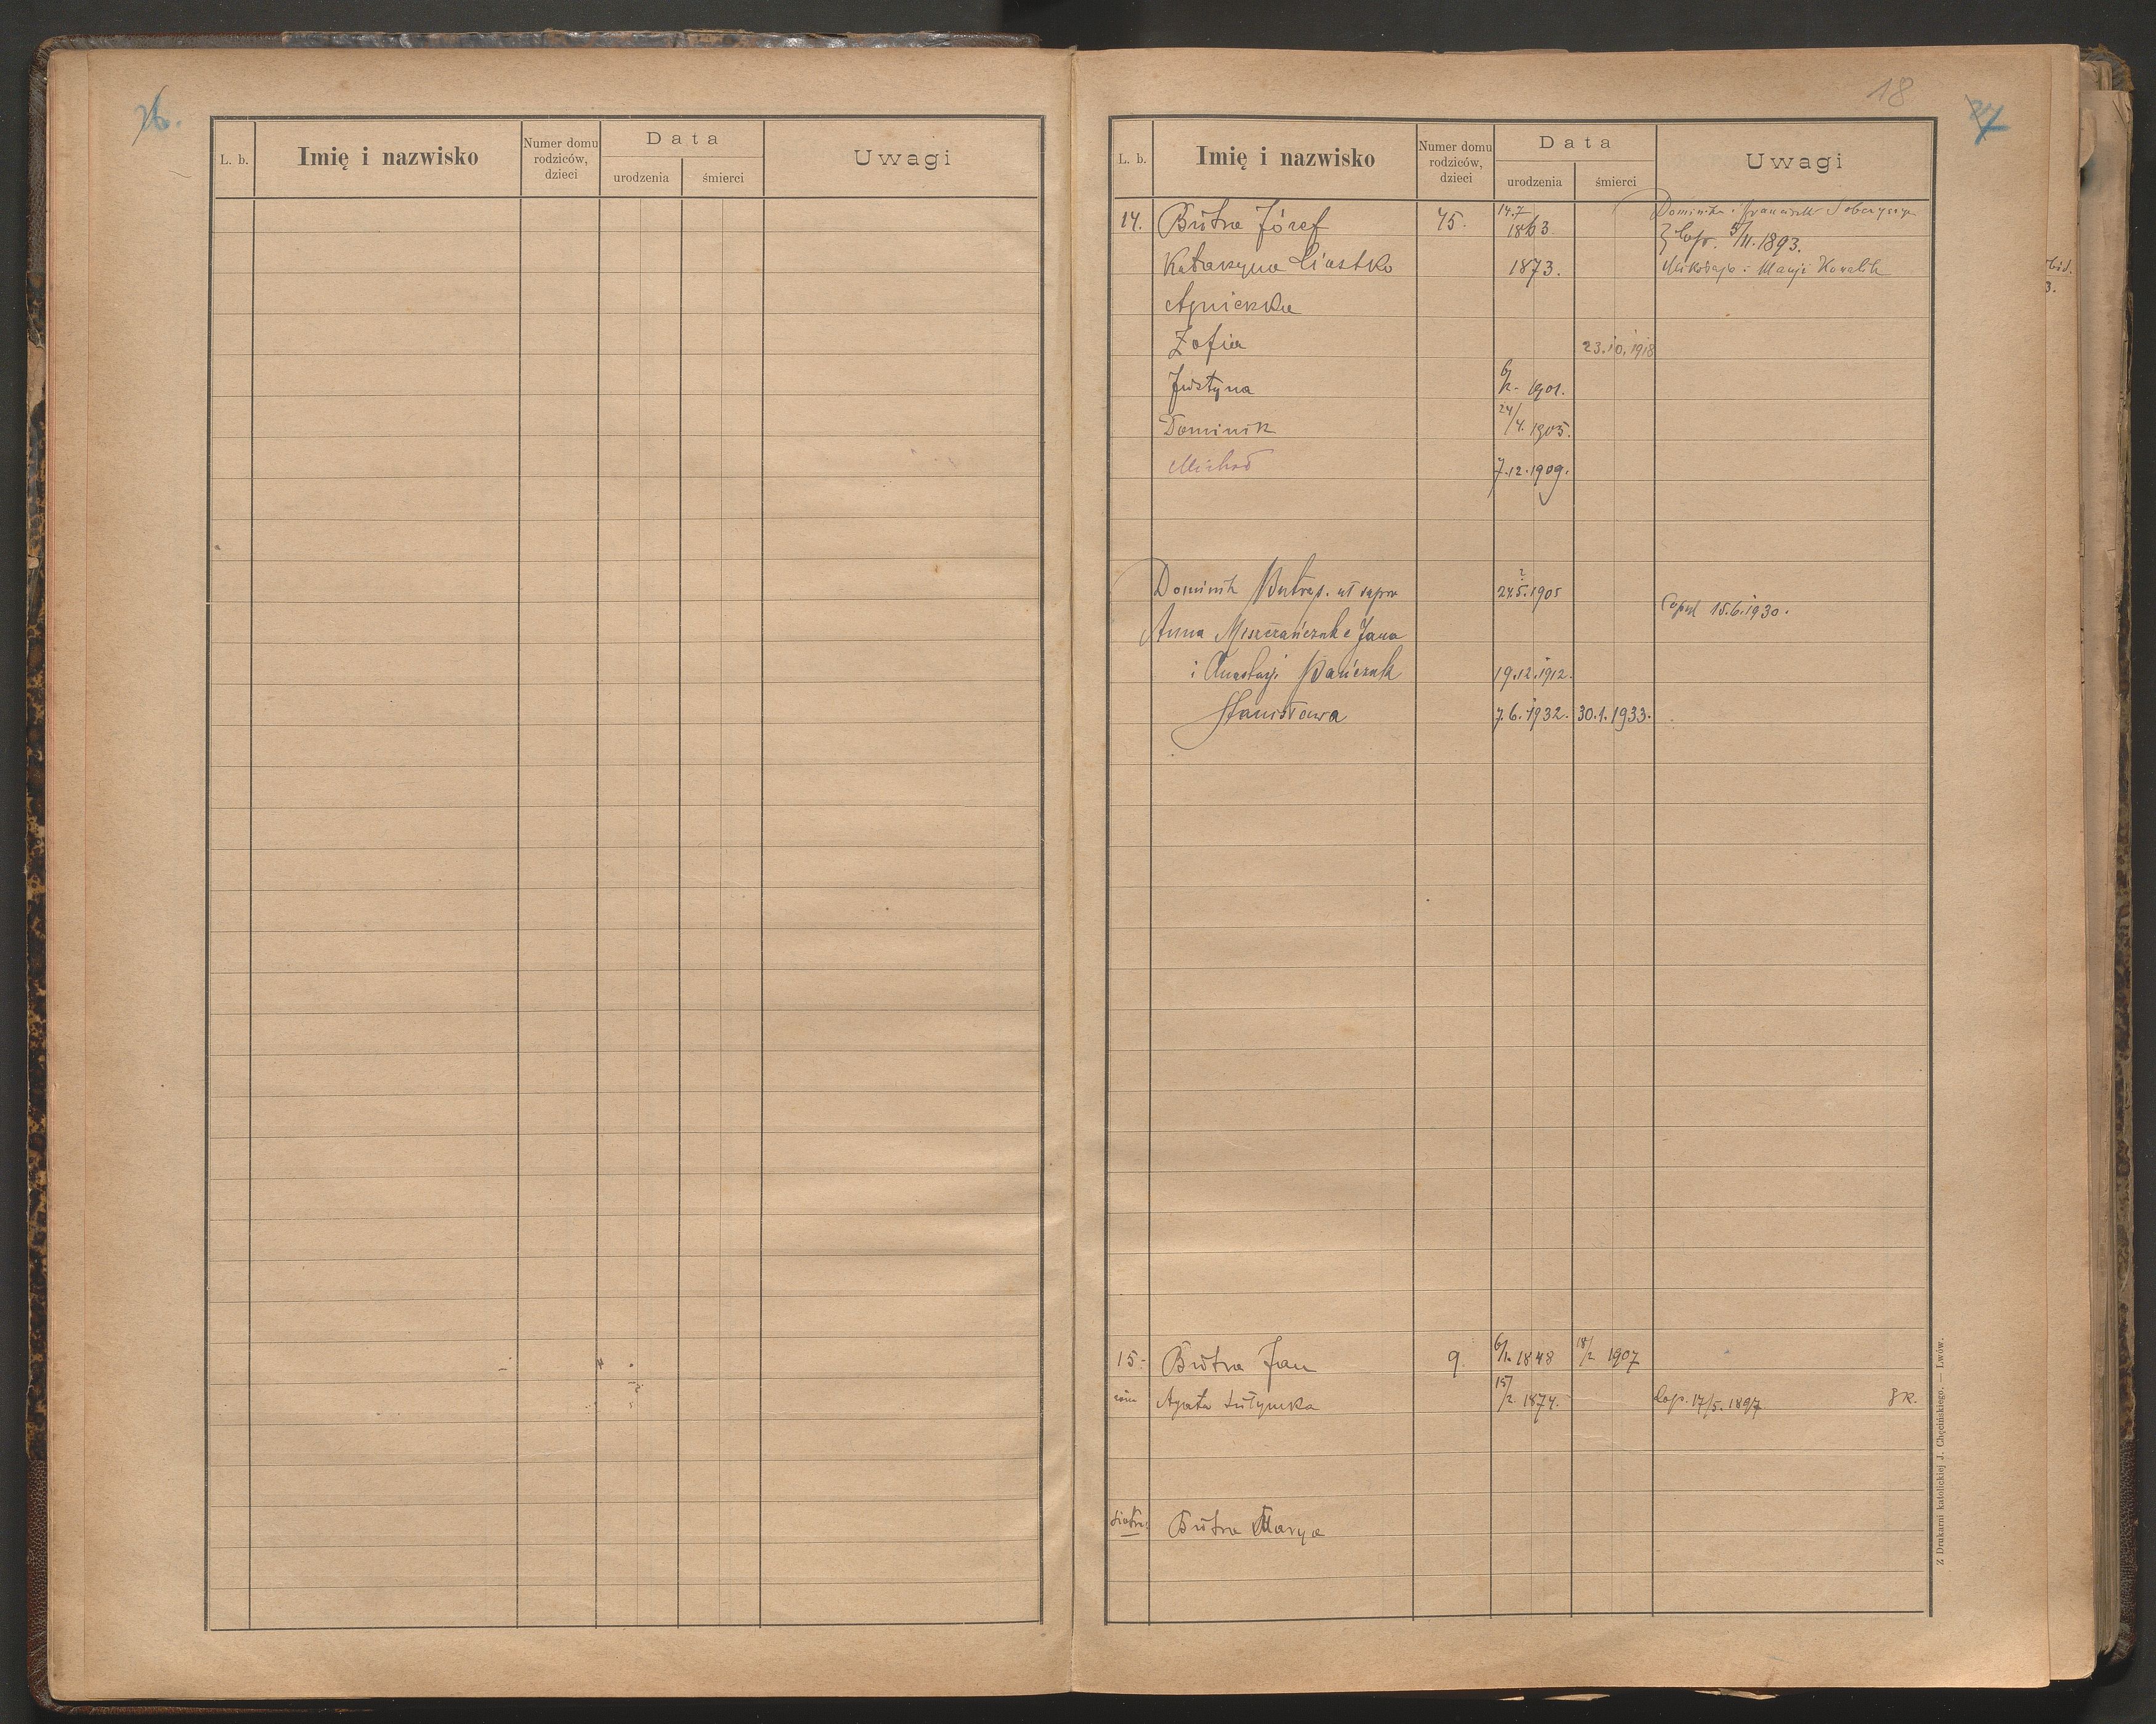 26.
L. b.
Imię i nazwisko
Numer domu rodziców, dzieci
Data
urodzenia
śmierci
Uwagi
18
L. b.
Imię i nazwisko
Numer domu rodziców, dzieci
Data
urodzenia
śmierci
Uwagi
14. Butra Józef 45. 14.7 1863. Dominika i Franciszki
5/11. 1893.
Katarzyna Ciastko 1873. Mikołaja i Maryi Kowalik
Agnieszka
Zofia 23.10.1918
Justyna 6/2. 1901.
Dominik 24/4. 1905.
Michał 7.12.1909.
Dominik Butra p. ut supra 24.5.1905 ?
15.6.1930.
Anna Mieszczańczuk c. Jana
i Anastazji Bańczuk 19.12.1912.
Stanisława 7.6.1932. 30.1.1933.
15. Butra Jan 9. 6/1. 1848 18/2 1907
Agata 15/2. 1874. 17/5. 1897. 8 K.
siostra Butra Marya
Z Drukarni katolickiej J. Chęcińskiego. — Lwów.